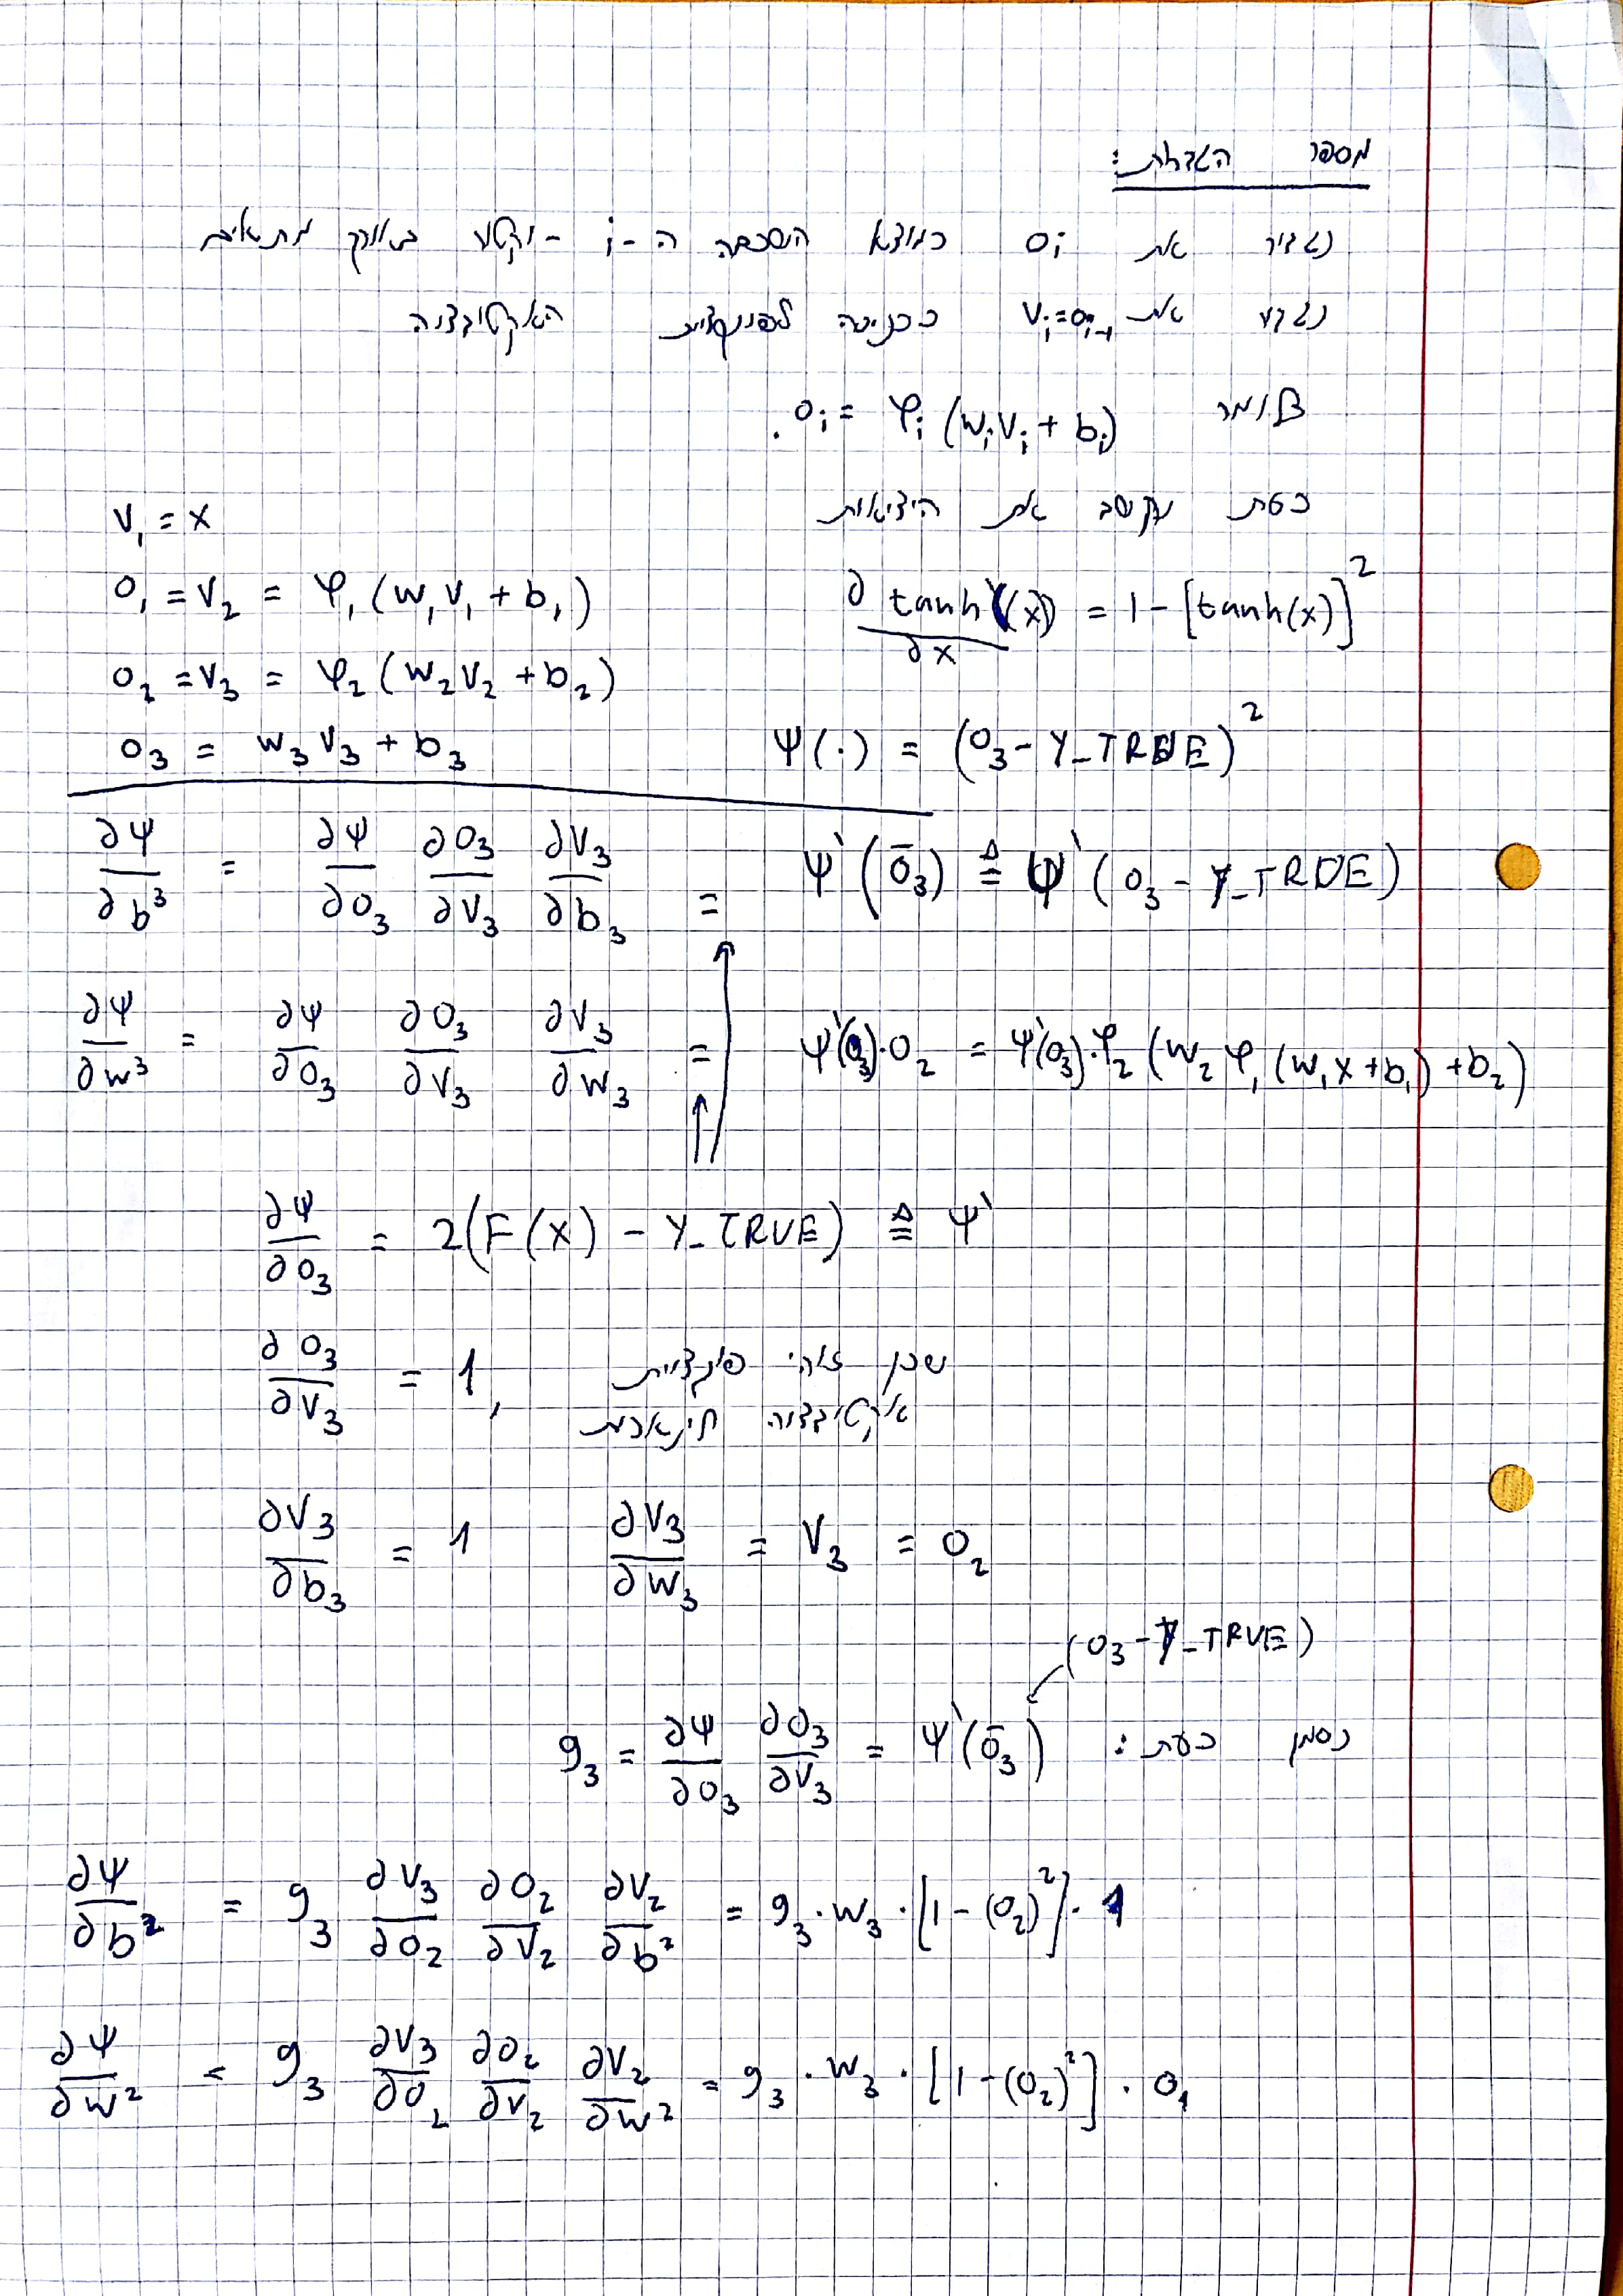 מספר הגדרות:
נגדיר את o_i כמוצא השכבה ה-i - וקטור באורך מתאים
נגדיר את v_i=o_{i-1} ככניסה לפונקציית האקטיבציה
כלומר o_i = φ_i (w_i v_i + b_i).
כעת נחשב את היציאות
v_1 = x
o_1 = v_2 = φ_1 (w_1 v_1 + b_1)
∂ tanh(x) / ∂x = 1 - [tanh(x)]^2
o_2 = v_3 = φ_2 (w_2 v_2 + b_2)
o_3 = w_3 v_3 + b_3
Ψ(·) = (o_3 - Y_TRUE)^2
∂Ψ/∂b^3 = ∂Ψ/∂o_3 ∂o_3/∂v_3 ∂v_3/∂b_3 = Ψ'(ō_3) ≜ Ψ'(o_3 - Y_TRUE)
∂Ψ/∂w^3 = ∂Ψ/∂o_3 ∂o_3/∂v_3 ∂v_3/∂w_3 = Ψ'(o_3)·o_2 = Ψ'(o_3)·φ_2 (w_2 φ_1 (w_1 x + b_1) + b_2)
∂Ψ/∂o_3 = 2(F(x) - Y_TRUE) ≜ Ψ'
∂o_3/∂v_3 = 1, שכן זוהי פונקציית
אקטיבציה לינארית
∂v_3/∂b_3 = 1 ∂v_3/∂w_3 = v_3 = o_2
(o_3 - Y_TRUE)
נסמן כעת: g_3 = ∂Ψ/∂o_3 ∂o_3/∂v_3 = Ψ'(ō_3)
∂Ψ/∂b^2 = g_3 ∂v_3/∂o_2 ∂o_2/∂v_2 ∂v_2/∂b^2 = g_3·w_3·[1-(o_2)^2]·1
∂Ψ/∂w^2 = g_3 ∂v_3/∂o_2 ∂o_2/∂v_2 ∂v_2/∂w^2 = g_3·w_3·[1-(o_2)^2]·o_1